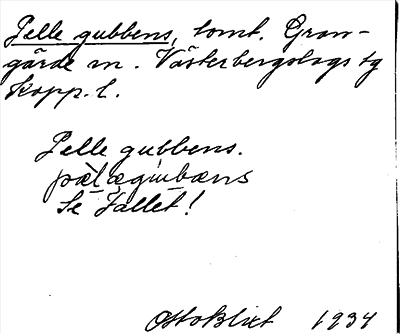 Pelle gubbens, tomt. Gran-
gärde sn. Västerbergslags tg
Kopp. l.
Pelle gubbens.
Se Fallet!
Otto Blixt 1934